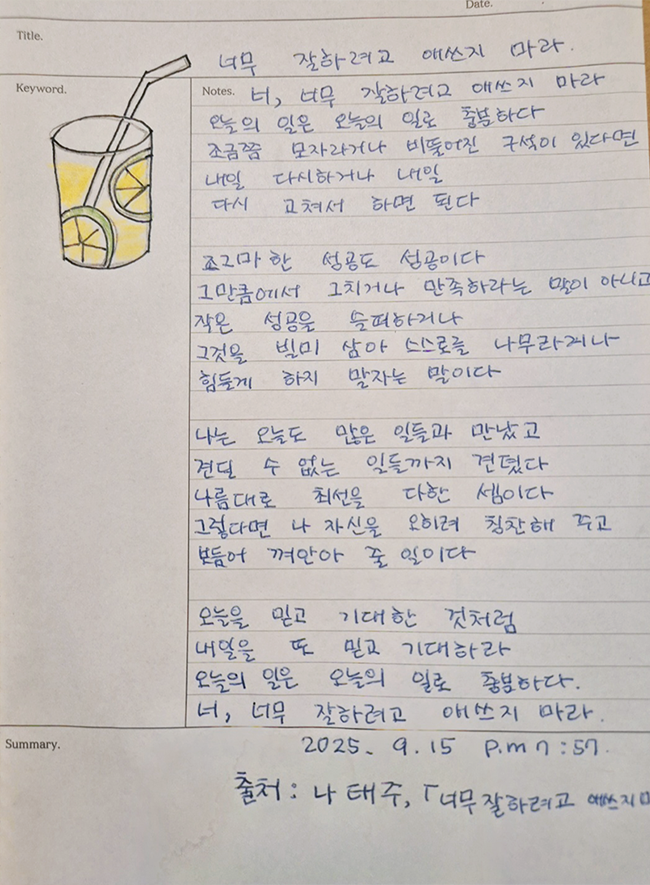 Date.
Title.
너무 잘하려고 애쓰지 마라.
Keyword.
Notes.
너, 너무 잘하려고 애쓰지 마라
오늘의 일은 오늘의 일로 충분하다
조금쯤 모자라거나 비뚤어진 구석이 있다면
내일 다시하거나 내일
다시 고쳐서 하면 된다
조그마한 성공도 성공이다
그만큼에서 그치거나 만족하라는 말이 아니고
작은 성공을 슬퍼하거나
그것을 빌미 삼아 스스로를 나무라거나
힘들게 하지 말자는 말이다
나는 오늘도 많은 일들과 만났고
견딜 수 없는 일들까지 견뎠다
나름대로 최선을 다한 셈이다
그렇다면 나 자신을 오히려 칭찬해 주고
보듬어 껴안아 줄 일이다
오늘을 믿고 기대한 것처럼
내일을 또 믿고 기대하라
오늘의 일은 오늘의 일로 충분하다.
너, 너무 잘하려고 애쓰지 마라.
Summary.
2025. 9. 15 p.m 7:57.
출처: 나태주, 「너무 잘하려고 애쓰지 마